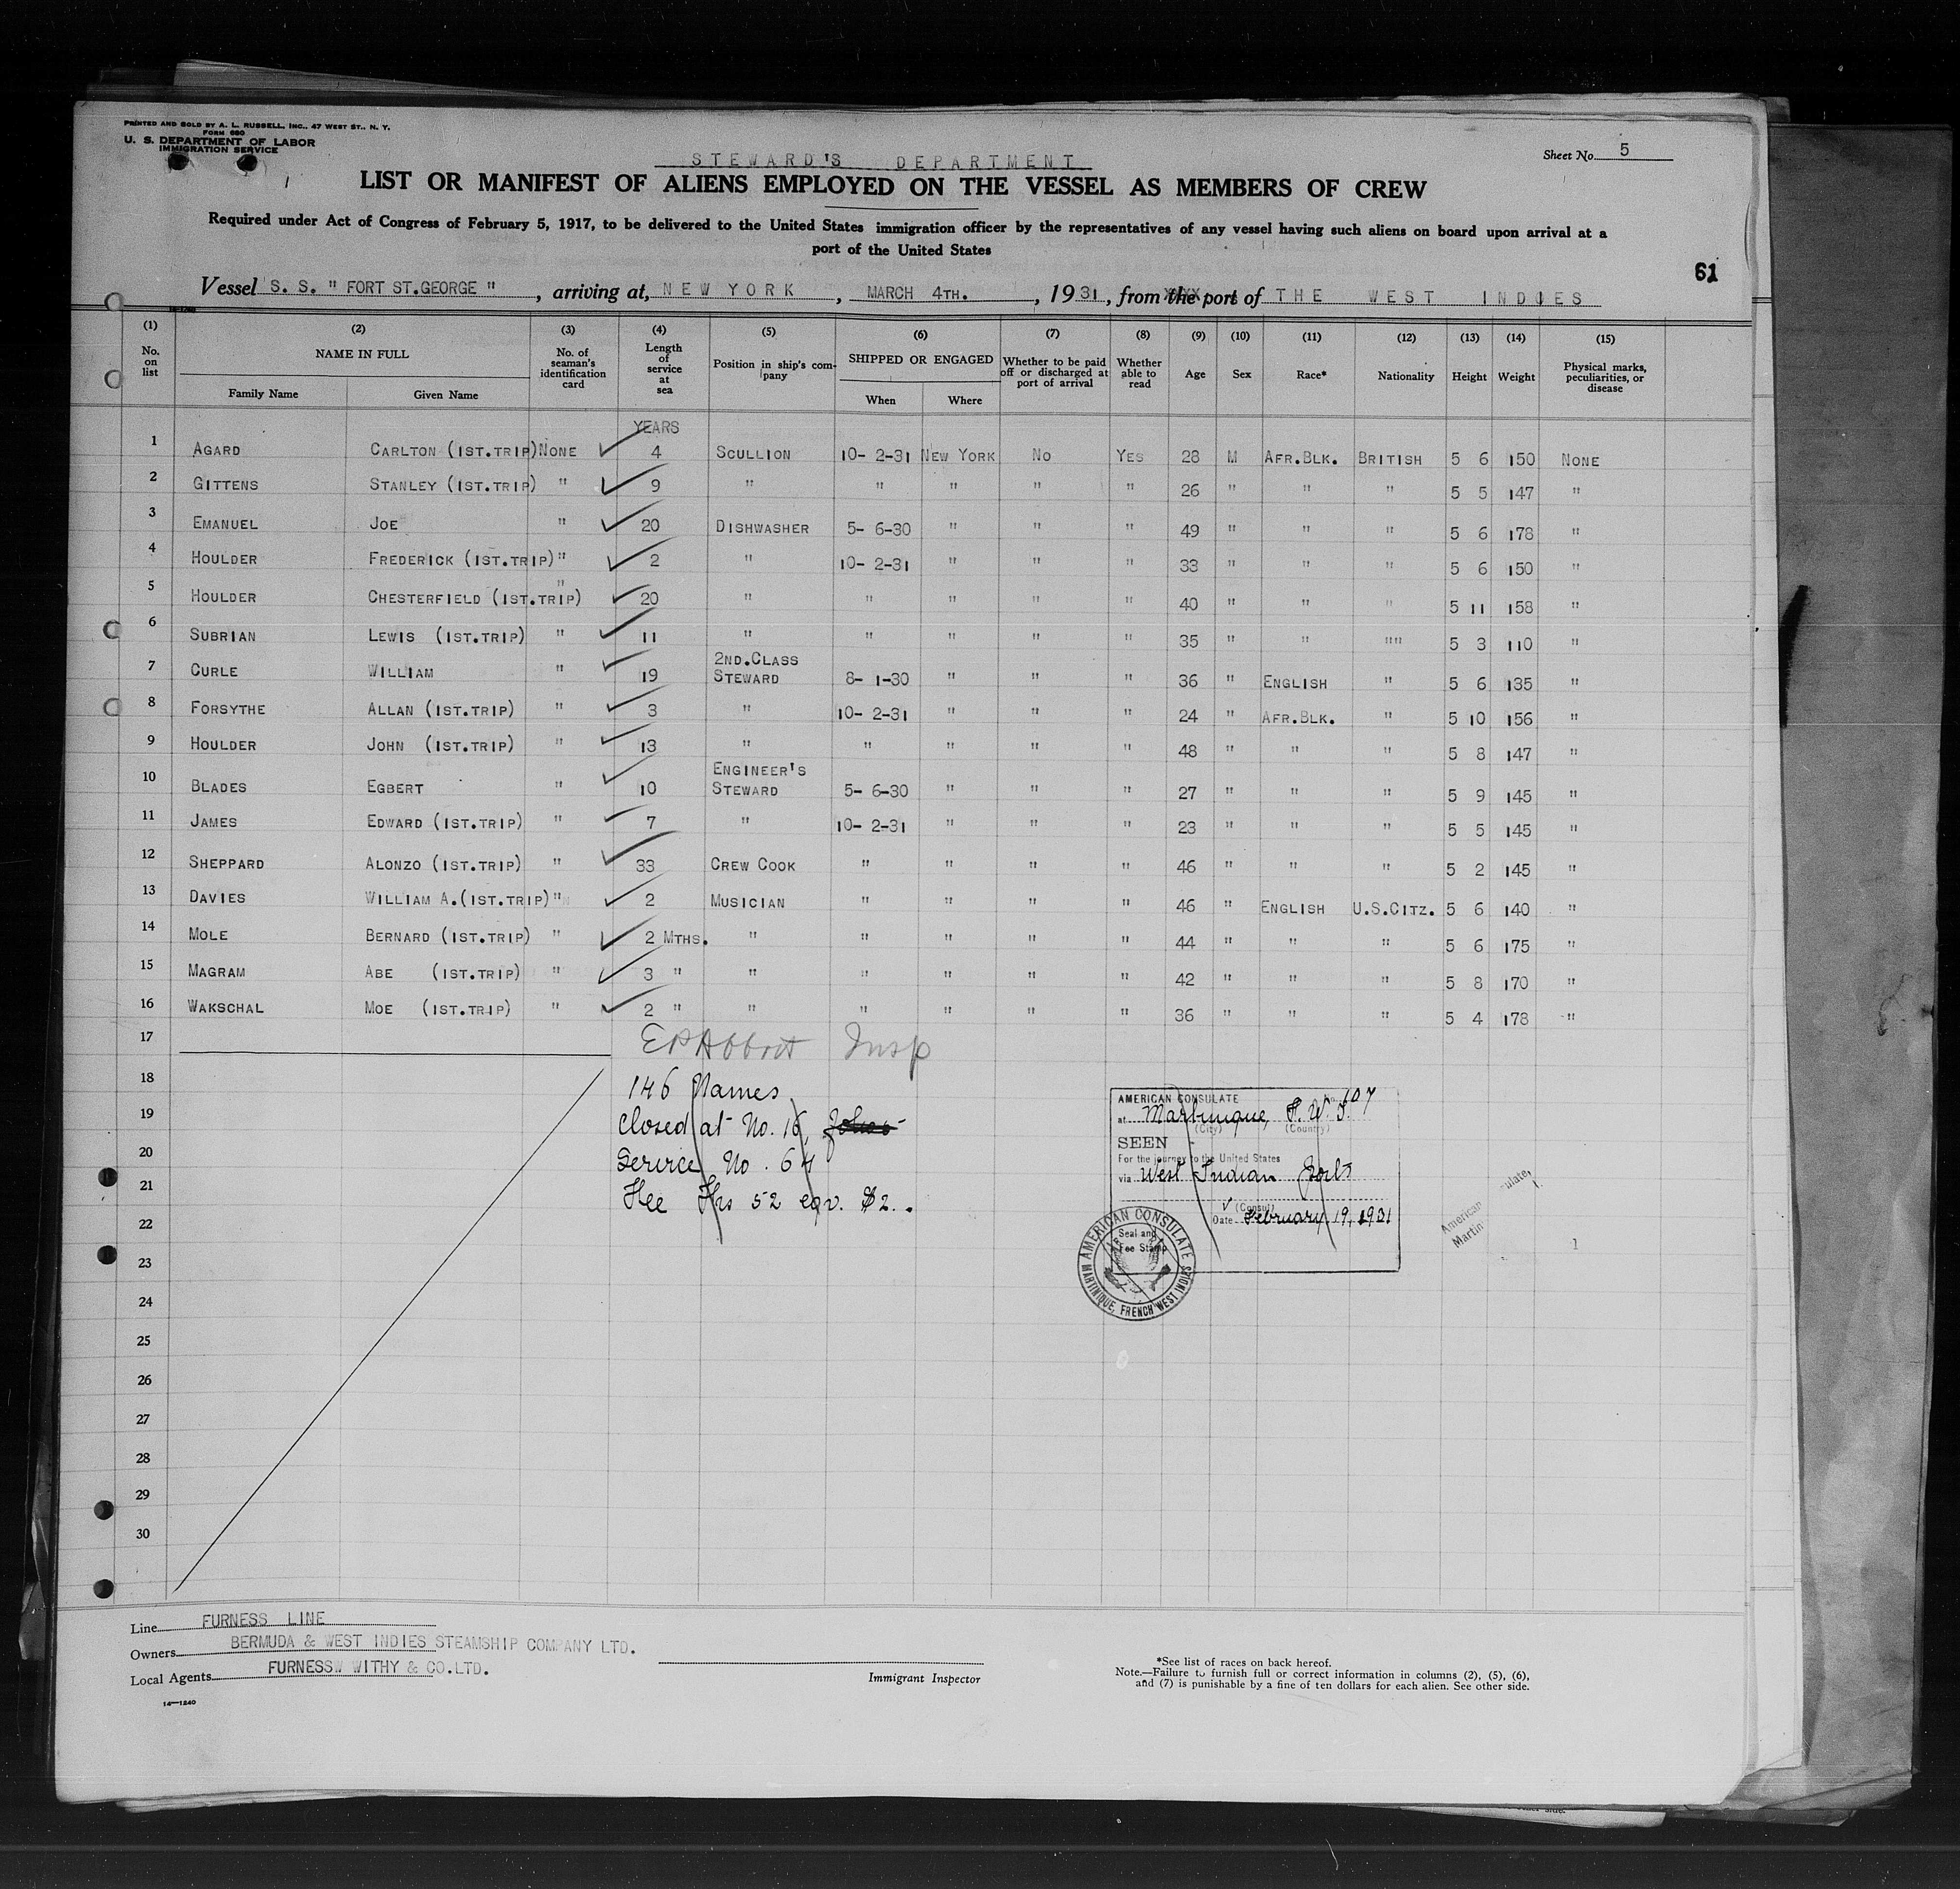 PRINTED AND SOLD BY A. L. RUSSELL, INC., 47 WEST ST., N. Y.
FORM 680
U. S. DEPARTMENT OF LABOR
IMMIGRATION SERVICE
STEWARD'S DEPARTMENT
Sheet No. 5
LIST OR MANIFEST OF ALIENS EMPLOYED ON THE VESSEL AS MEMBERS OF CREW
Required under Act of Congress of February 5, 1917, to be delivered to the United States immigration officer by the representatives of any vessel having such aliens on board upon arrival at a
port of the United States
61
Vessel S. S. " FORT ST.GEORGE ", arriving at, NEW YORK, MARCH 4TH., 1931, from the port of THE WEST INDIES
(1) (2) (3) (4) (5) (6) (7) (8) (9) (10) (11) (12) (13) (14) (15)
No. on list NAME IN FULL Family Name Given Name No. of seaman's identification card Length of service at sea Position in ship's company SHIPPED OR ENGAGED When Where Whether to be paid off or discharged at port of arrival Whether able to read Age Sex Race* Nationality Height Weight Physical marks, peculiarities, or disease
YEARS
1 AGARD CARLTON (1ST.TRIP) NONE 4 SCULLION 10- 2-31 NEW YORK NO YES 28 M AFR.BLK. BRITISH 5 6 150 NONE
2 GITTENS STANLEY (1ST.TRIP) " 9 " " " " " 26 " " " 5 5 147 "
3 EMANUEL JOE " 20 DISHWASHER 5- 6-30 " " " 49 " " " 5 6 178 "
4 HOULDER FREDERICK (1ST.TRIP) " 2 " 10- 2-31 " " " 33 " " " 5 6 150 "
5 HOULDER CHESTERFIELD (1ST.TRIP) " 20 " " " " " 40 " " " 5 11 158 "
6 SUBRIAN LEWIS (1ST.TRIP) " 11 " " " " " 35 " " "" 5 3 110 "
7 CURLE WILLIAM " 19 2ND.CLASS STEWARD 8- 1-30 " " " 36 " ENGLISH " 5 6 135 "
8 FORSYTHE ALLAN (1ST.TRIP) " 3 " 10- 2-31 " " " 24 " AFR.BLK. " 5 10 156 "
9 HOULDER JOHN (1ST.TRIP) " 13 " " " " " 48 " " " 5 8 147 "
10 BLADES EGBERT " 10 ENGINEER'S STEWARD 5- 6-30 " " " 27 " " " 5 9 145 "
11 JAMES EDWARD (1ST.TRIP) " 7 " 10- 2-31 " " " 23 " " " 5 5 145 "
12 SHEPPARD ALONZO (1ST.TRIP) " 33 CREW COOK " " " " 46 " " " 5 2 145 "
13 DAVIES WILLIAM A.(1ST.TRIP) " 2 MUSICIAN " " " " 46 " ENGLISH U.S.CITZ. 5 6 140 "
14 MOLE BERNARD (1ST.TRIP) " 2 MTHS. " " " " " 44 " " " 5 6 175 "
15 MAGRAM ABE (1ST.TRIP) " 3 " " " " " " 42 " " " 5 8 170 "
16 WAKSCHAL MOE (1ST.TRIP) " 2 " " " " " " 36 " " " 5 4 178 "
17
Insp
18
146 Names
19
Closed at No. 16,
20
Service No. 64
21
Fee Frs 52 eqv. $2..
22
23
24
25
26
27
28
29
30
AMERICAN CONSULATE No. 107
at Martinique, F. W. I.
(City) (Country)
SEEN
For the journey to the United States
via West Indian Ports
(Consul)
Date February 19, 1931
Seal and
Fee Stamp
AMERICAN CONSULATE
MARTINIQUE, FRENCH WEST INDIES
American
Martin
ulate,
1
Line FURNESS LINE
Owners BERMUDA & WEST INDIES STEAMSHIP COMPANY LTD.
Local Agents FURNESS WITHY & CO.LTD.
Immigrant Inspector
*See list of races on back hereof.
Note.—Failure to furnish full or correct information in columns (2), (5), (6),
and (7) is punishable by a fine of ten dollars for each alien. See other side.
14—1240